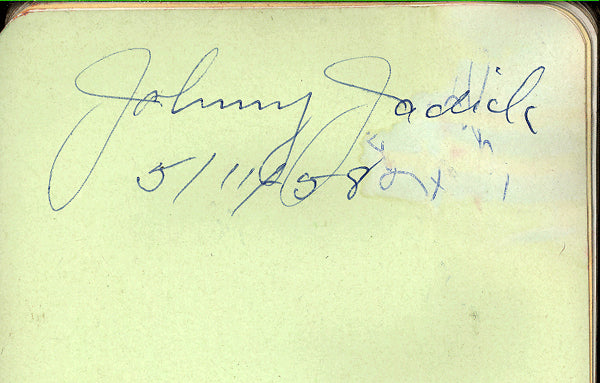 Johnny Jadick
5/11/58